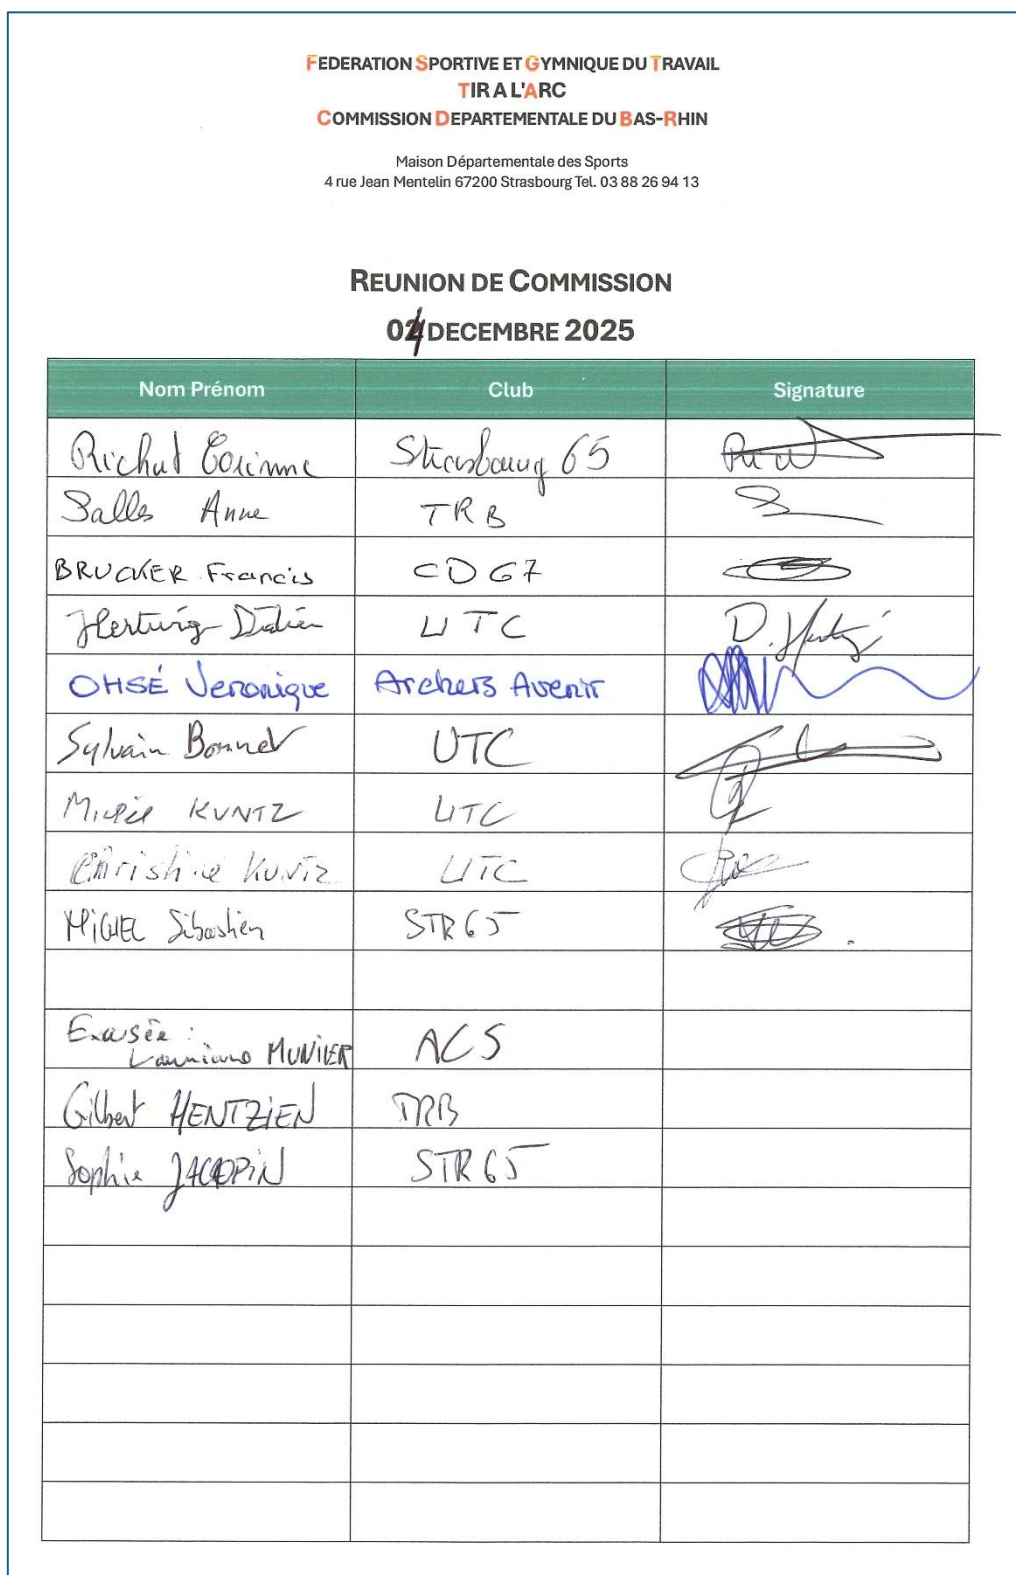 FEDERATION SPORTIVE ET GYMNIQUE DU TRAVAIL
TIR A L'ARC
COMMISSION DEPARTEMENTALE DU BAS-RHIN
Maison Départementale des Sports
4 rue Jean Mentelin 67200 Strasbourg Tel. 03 88 26 94 13
REUNION DE COMMISSION
04 DECEMBRE 2025
Nom Prénom Club Signature
Richat Corinne Strasbourg 65
Salles Anne TRB
BRUCKER Francis CD 67
Hertwig Didier UTC D. Hertwig
OHSÉ Veronique Archers Avenir
Sylvain Bonnet UTC
KUNTZ UTC
Christine KUNTZ UTC
MIGUEL Sébastien STR 65
Excusée :
MUNIER ACS
Gilbert HENTZIEN TRB
Sophie JACOPIN STR 65